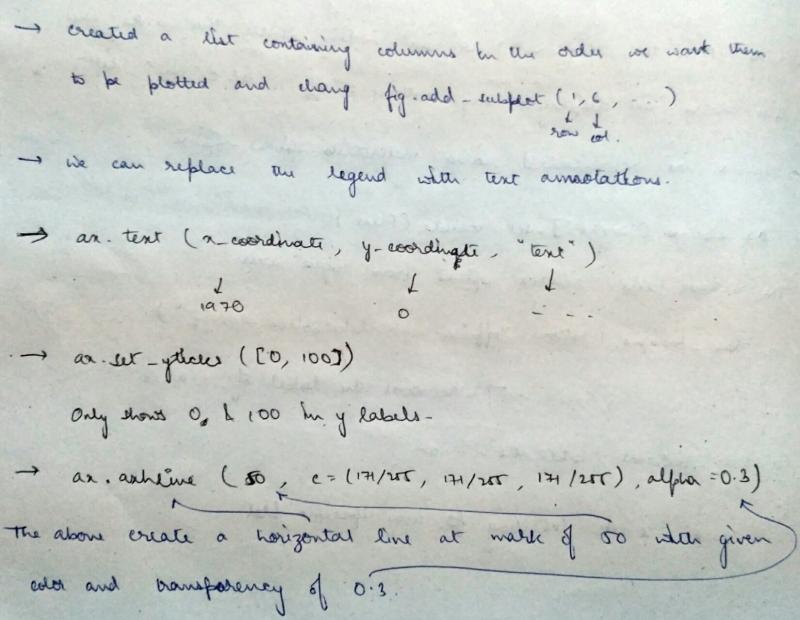 → created a list containing columns in the order we want them
to be plotted and chang fig.add_subplot (1, 6, ...)
↓ ↓
row col.
→ we can replace the legend with text annotations.
→ ax. text (x-coordinate, y-coordinate, "text")
↓ ↓ ↓
1970 0 - - -
→ ax.set_yticks ([0, 100])
Only shows 0, & 100 in y labels-
→ ax.axhline (50, c = (171/255, 171/255, 171/255), alpha = 0.3)
The above create a horizontal line at mark of 50 with given
color and transparency of 0.3.